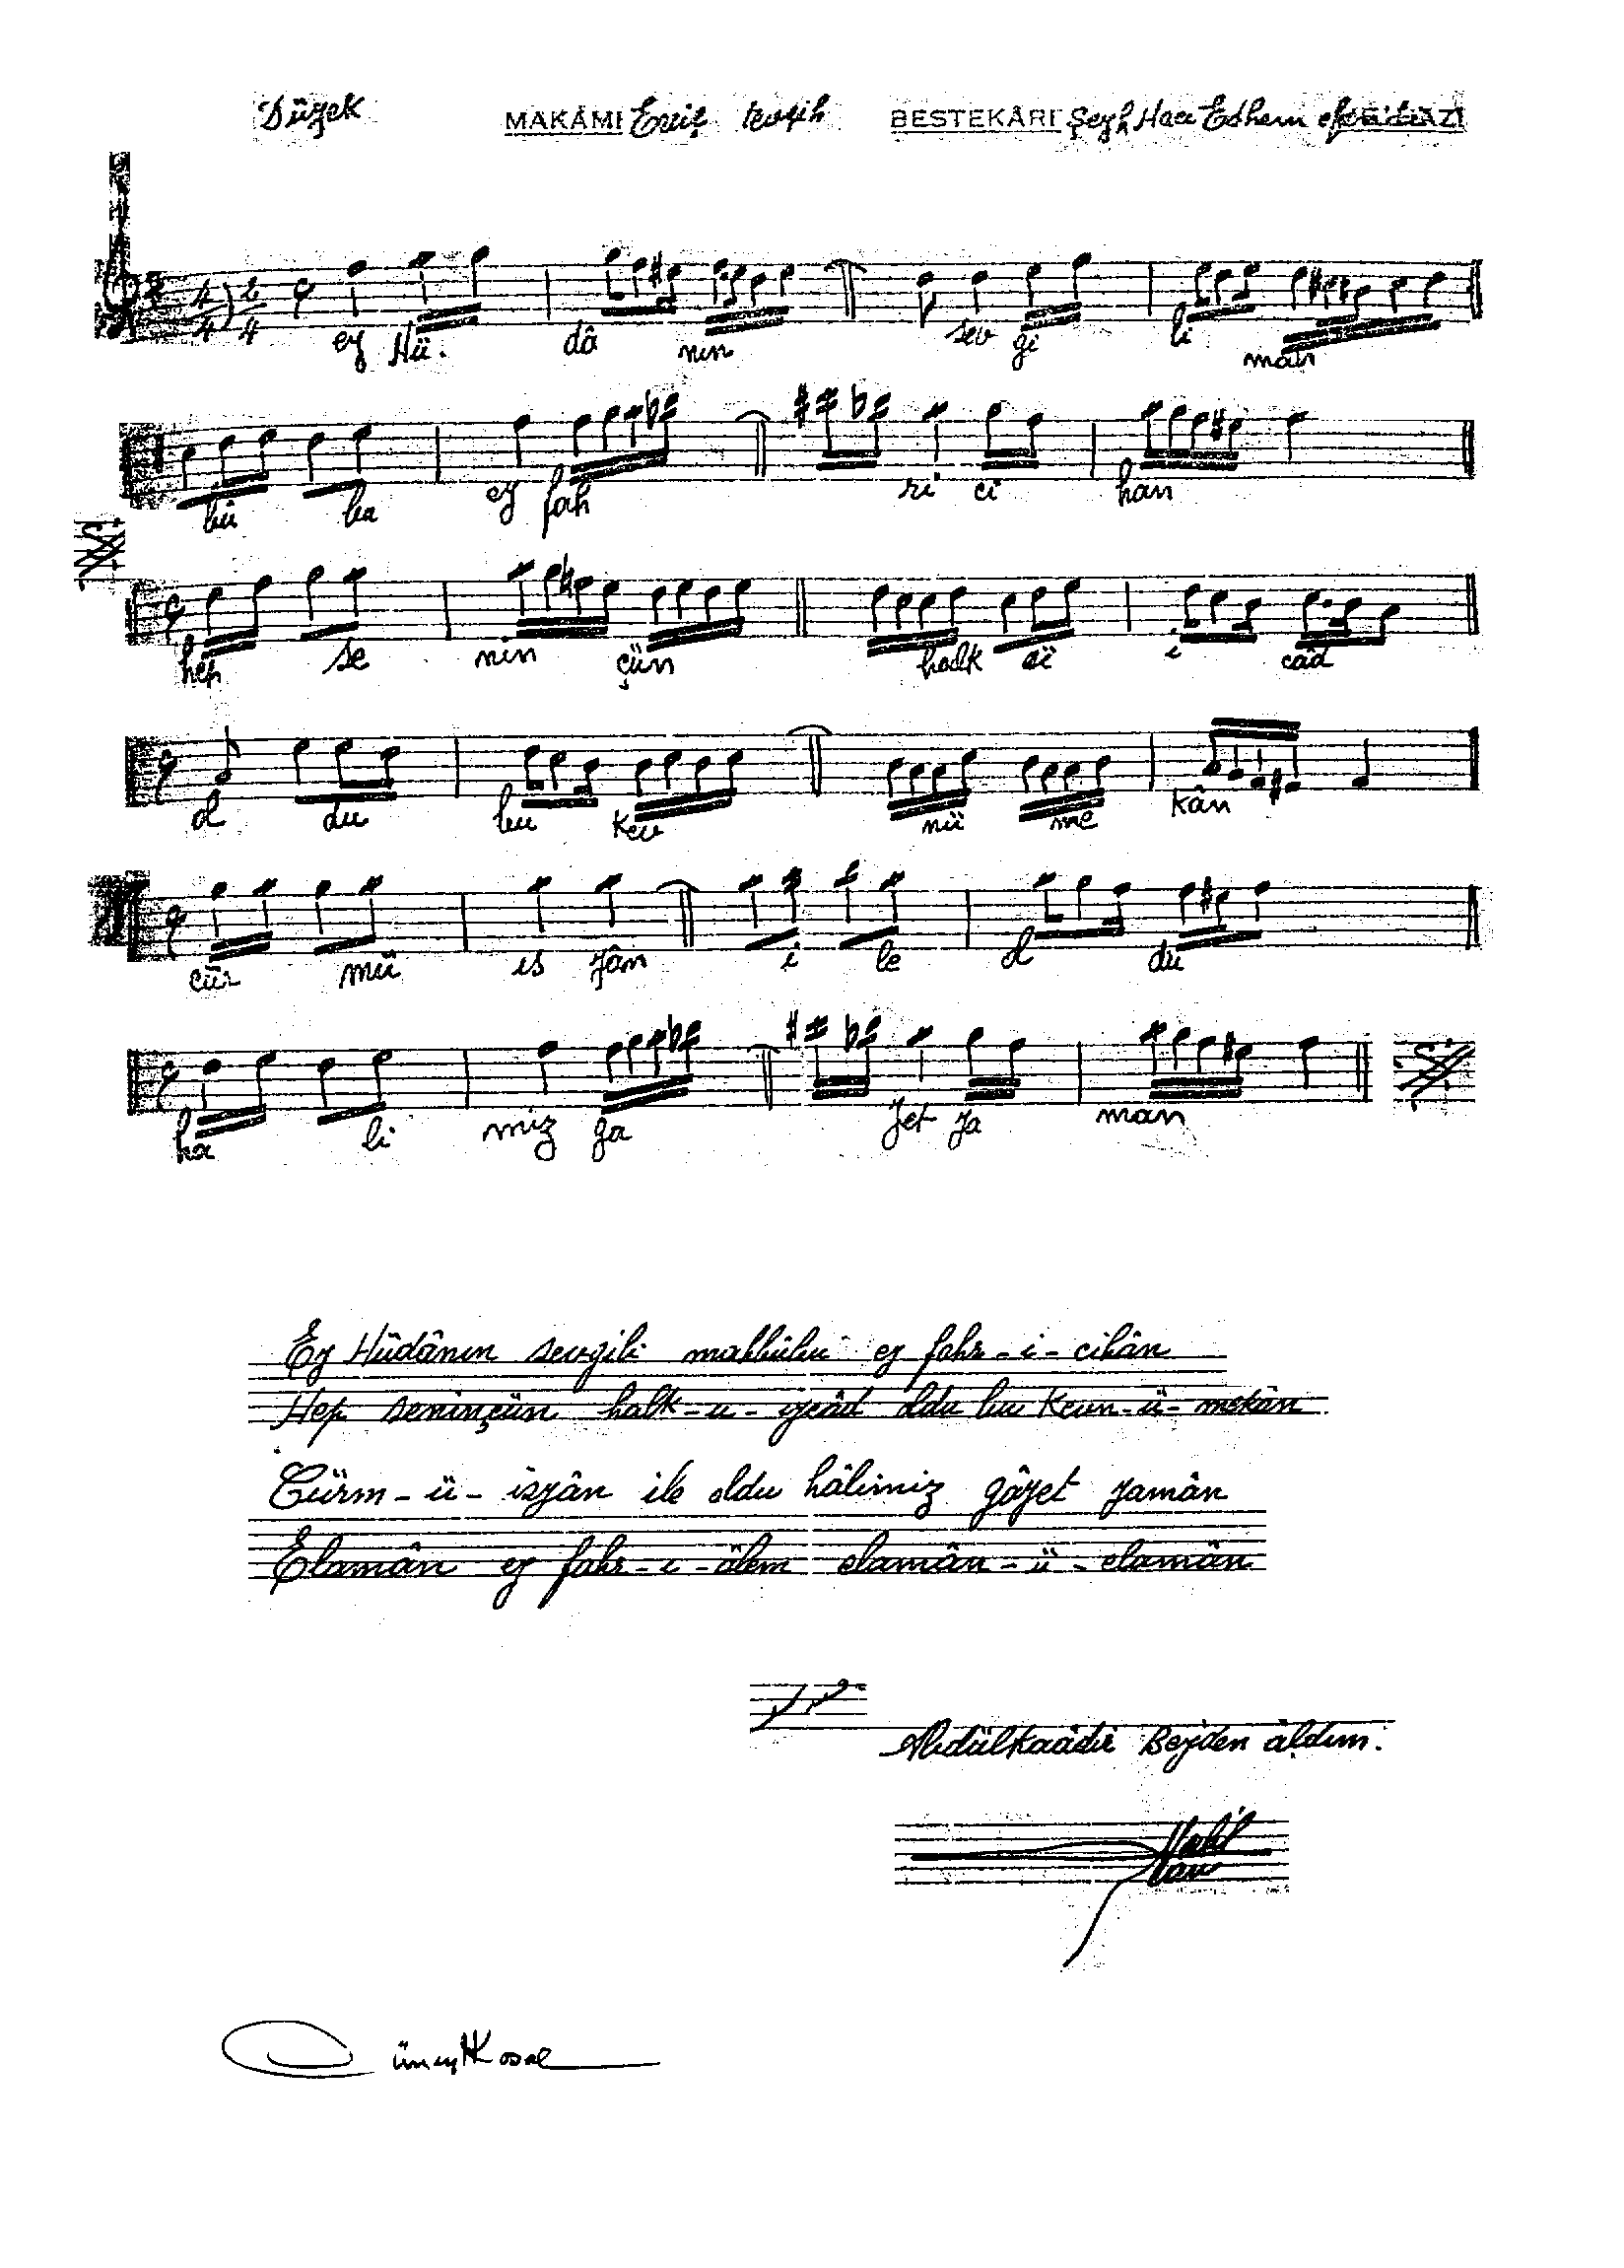 Düyek MAKÂMI Eviç tevşih BESTEKÂRI Şeyh Hacı Edhem efendi
4/4 2/4
ey Hü. dâ nın sev gi li mah
bû bu ey fah ri ci han
hep se nin çün halk ü i câd
ol du bu kev nü me kân
cür mü is yân i le ol du
ha li miz ga yet ya man
Ey Hüdânın sevgili mahbûbu ey fahr-i-cihân
Hep seninçün halk-u-ycâd oldu bu kevn-ü-mekân
Cürm-ü-isyân ile oldu hâlimiz gâyet yamân
Elamân ey fahr-i-âlem elamân-ü-elamân
Abdülkaadir Beyden aldım.
Cüneyt Kosal